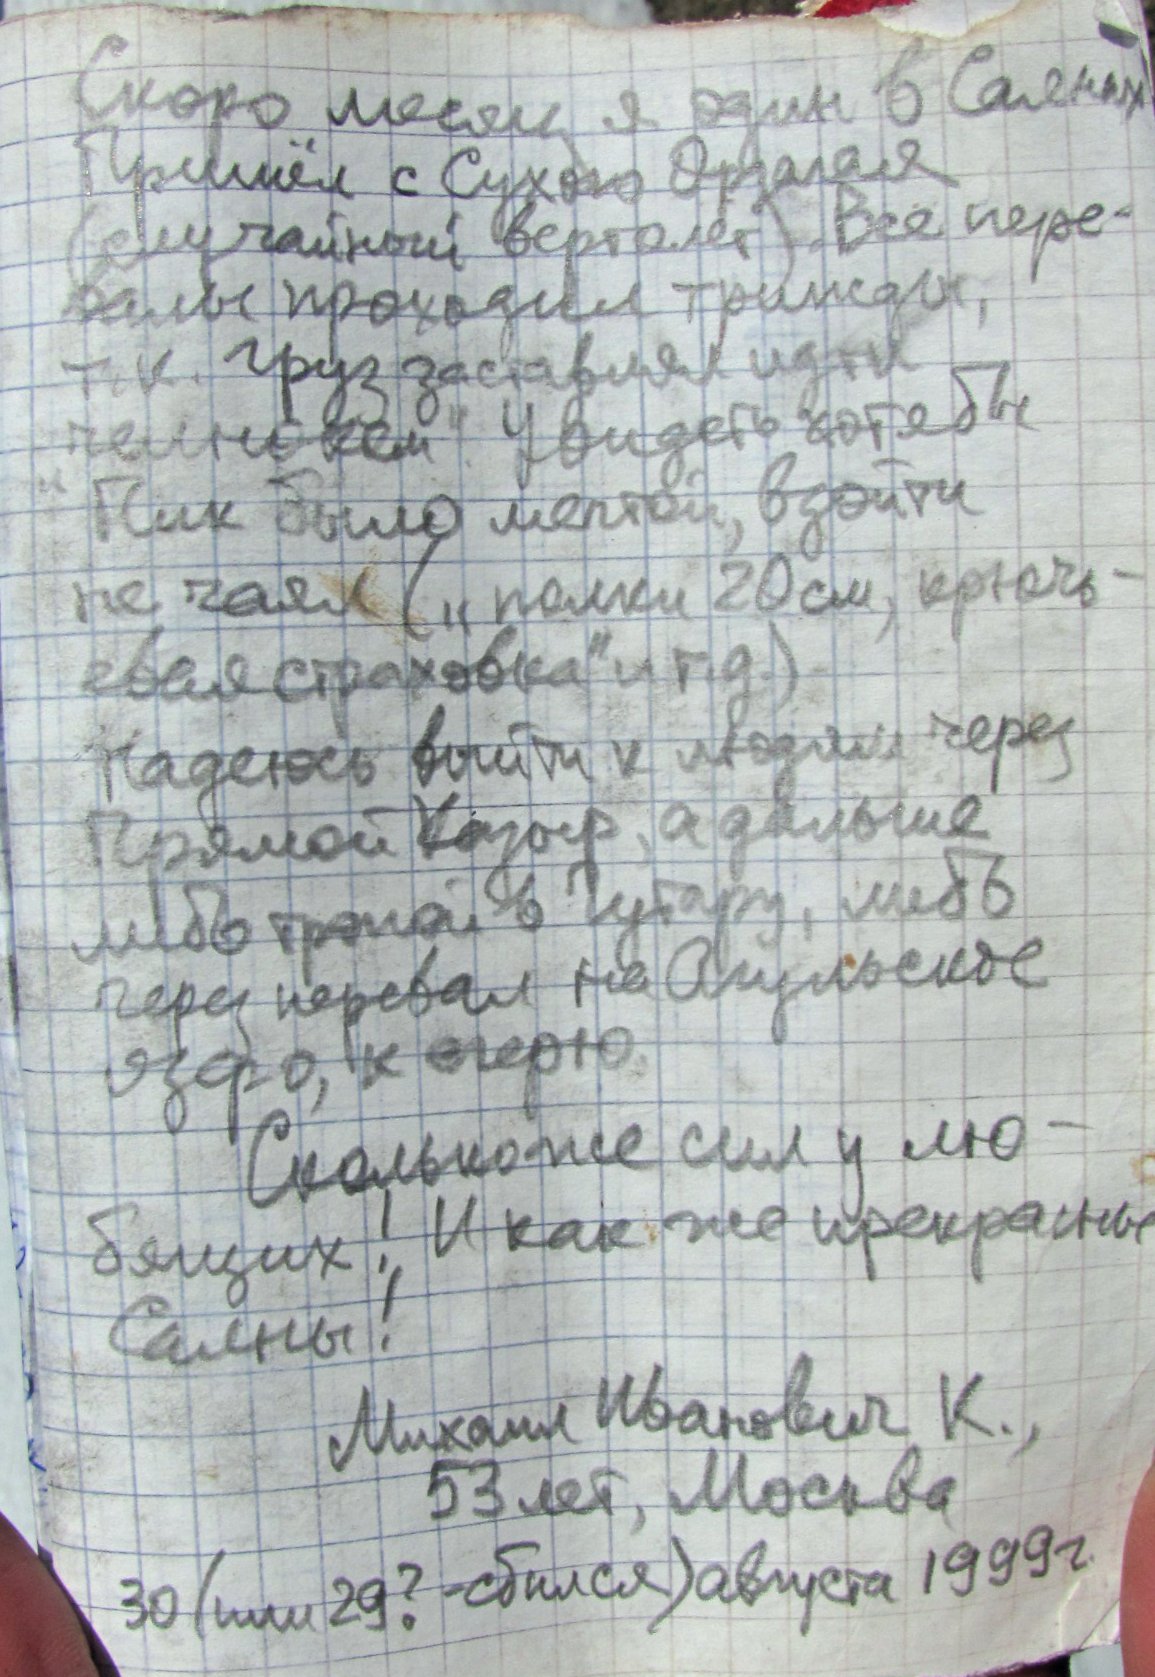 Скоро месяц я один в Саянах
Пришёл с Сухого
(случайный вертолёт). Все пере-
валы проходил трижды,
т.к. груз заставлял идти
"челноком". Увидеть хотя бы
Пик было мечтой, взойти
не чаял („полки 20 см, крючь-
евая страховка" и т.д.)
Надеюсь выйти к людям через
Прямой Казыр, а дальше
либо тропой в Гутару, либо
через перевал на Агульское
озеро, к
Сколько же сил у лю-
бящих! И как же прекрасны
Саяны!
Михаил Иванович К.,
53 лет, Москва
30 (или 29? - сбился) августа 1999 г.